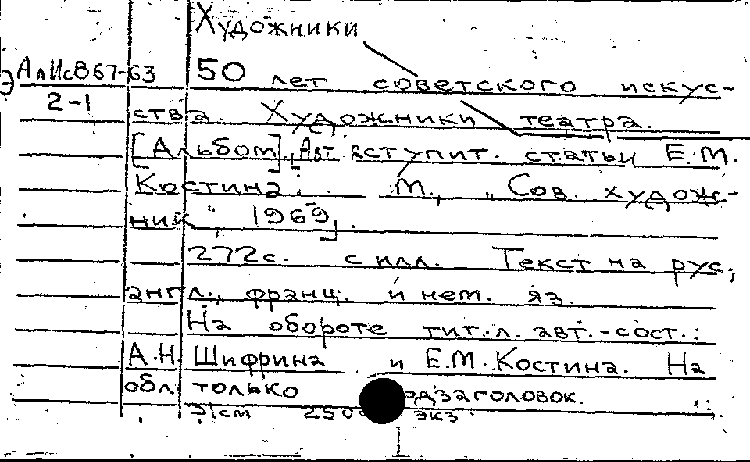 Художники
АлИс867-63 50 лет советского искус-
2-1 ства. Художники театра.
[Альбом]. [Авт. вступит. статьи Е.М.
Костина. М., "Сов. худож-
ник", 1969].
272с. с илл. Текст на рус,
англ., франц. и нем. яз.
На обороте тит.л. авт.-сост.:
А.Н. Шифрина и Е.М.Костина. На
обл. только подзаголовок.
экз